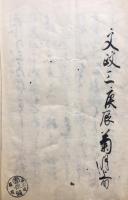 文政三庚辰菊月